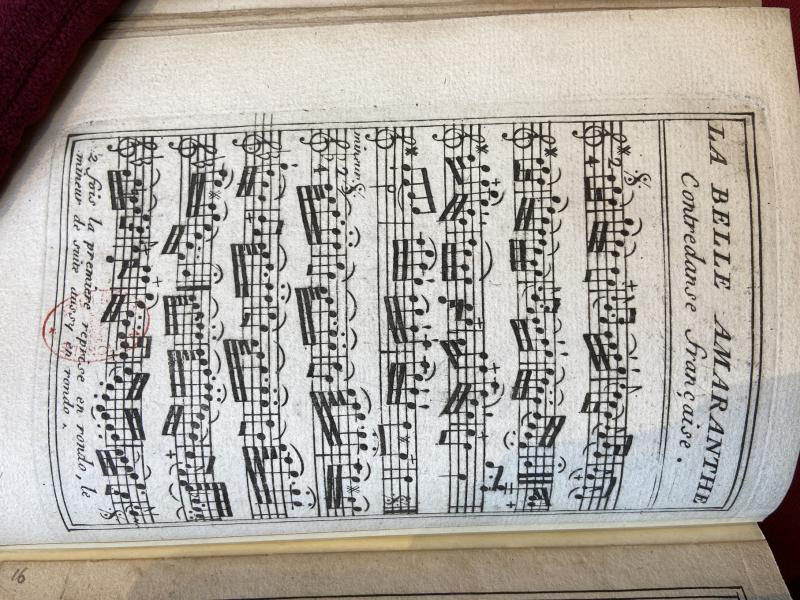 LA BELLE AMARANTHE
Contredanse française.
2
4
mineur
2
4
2. fois la première reprise en rondo, le
mineur de suite aussy en rondo.
16